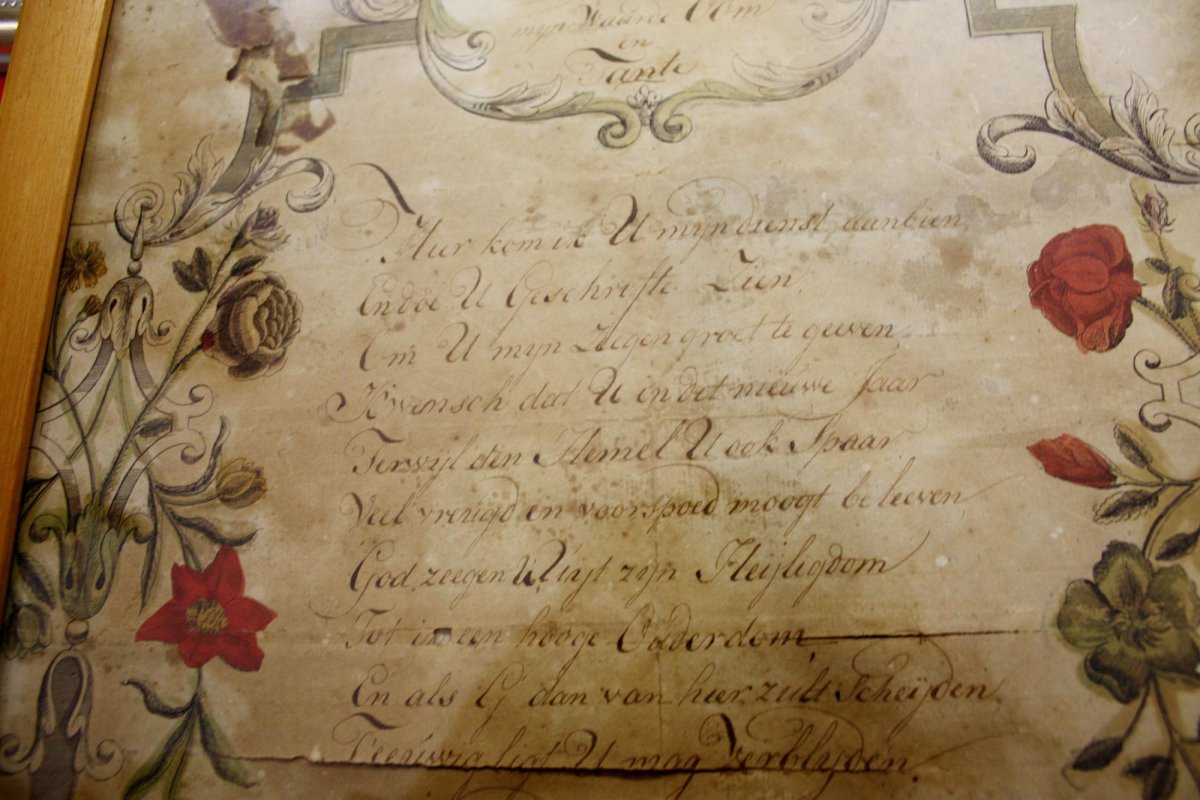 mijn Waarde Oom
en
Tante
Hier kom ik U mijn dienst aanbien,
En doe U Geschrifte Zien,
Om U mijn Zegen groet te geeven,
K'wensch dat U in dit nieuwe Jaar
Terwijl den Hemel U ook Spaar
Veel vreugd en voorspoed moogt beleeven,
God zeegen U, uijt zijn Heijligdom
Tot in een hooge Ouderdom,
En als Gij dan van hier zult Scheijden
T'eeuwig ligt U mag Verblyden.